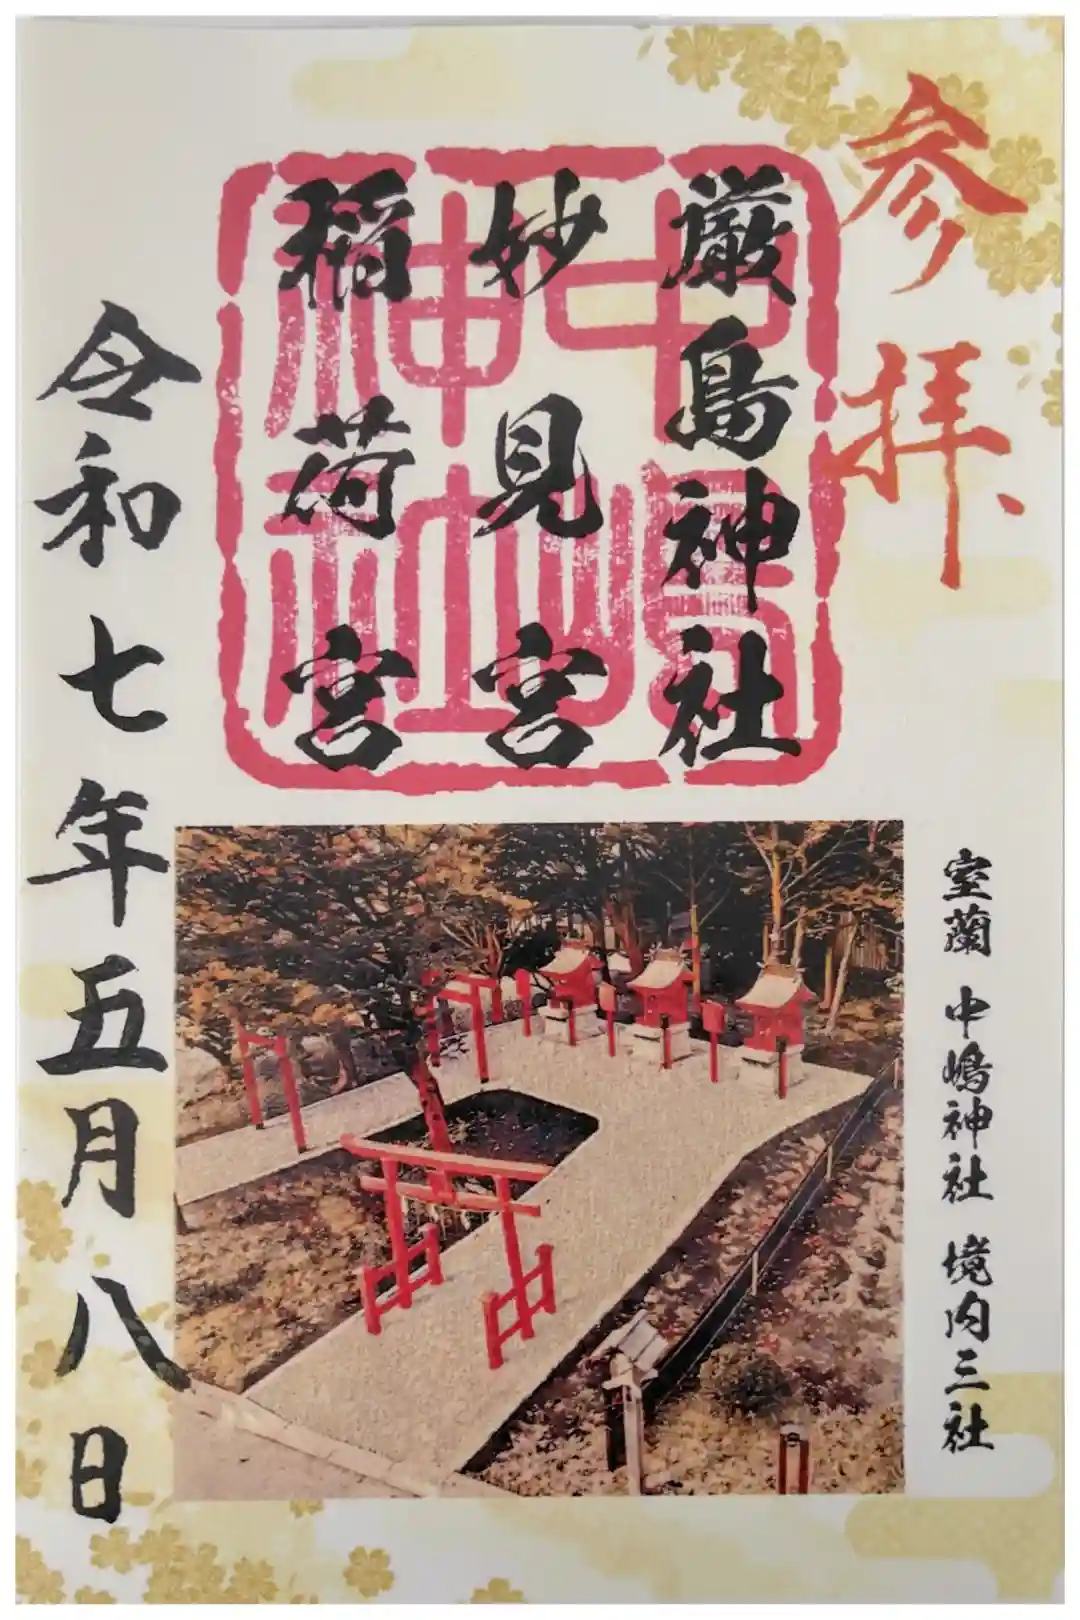 参拝
厳島神社
妙見宮
稲荷宮
中嶋
神社
室蘭 中嶋神社 境内三社
令和七年五月八日